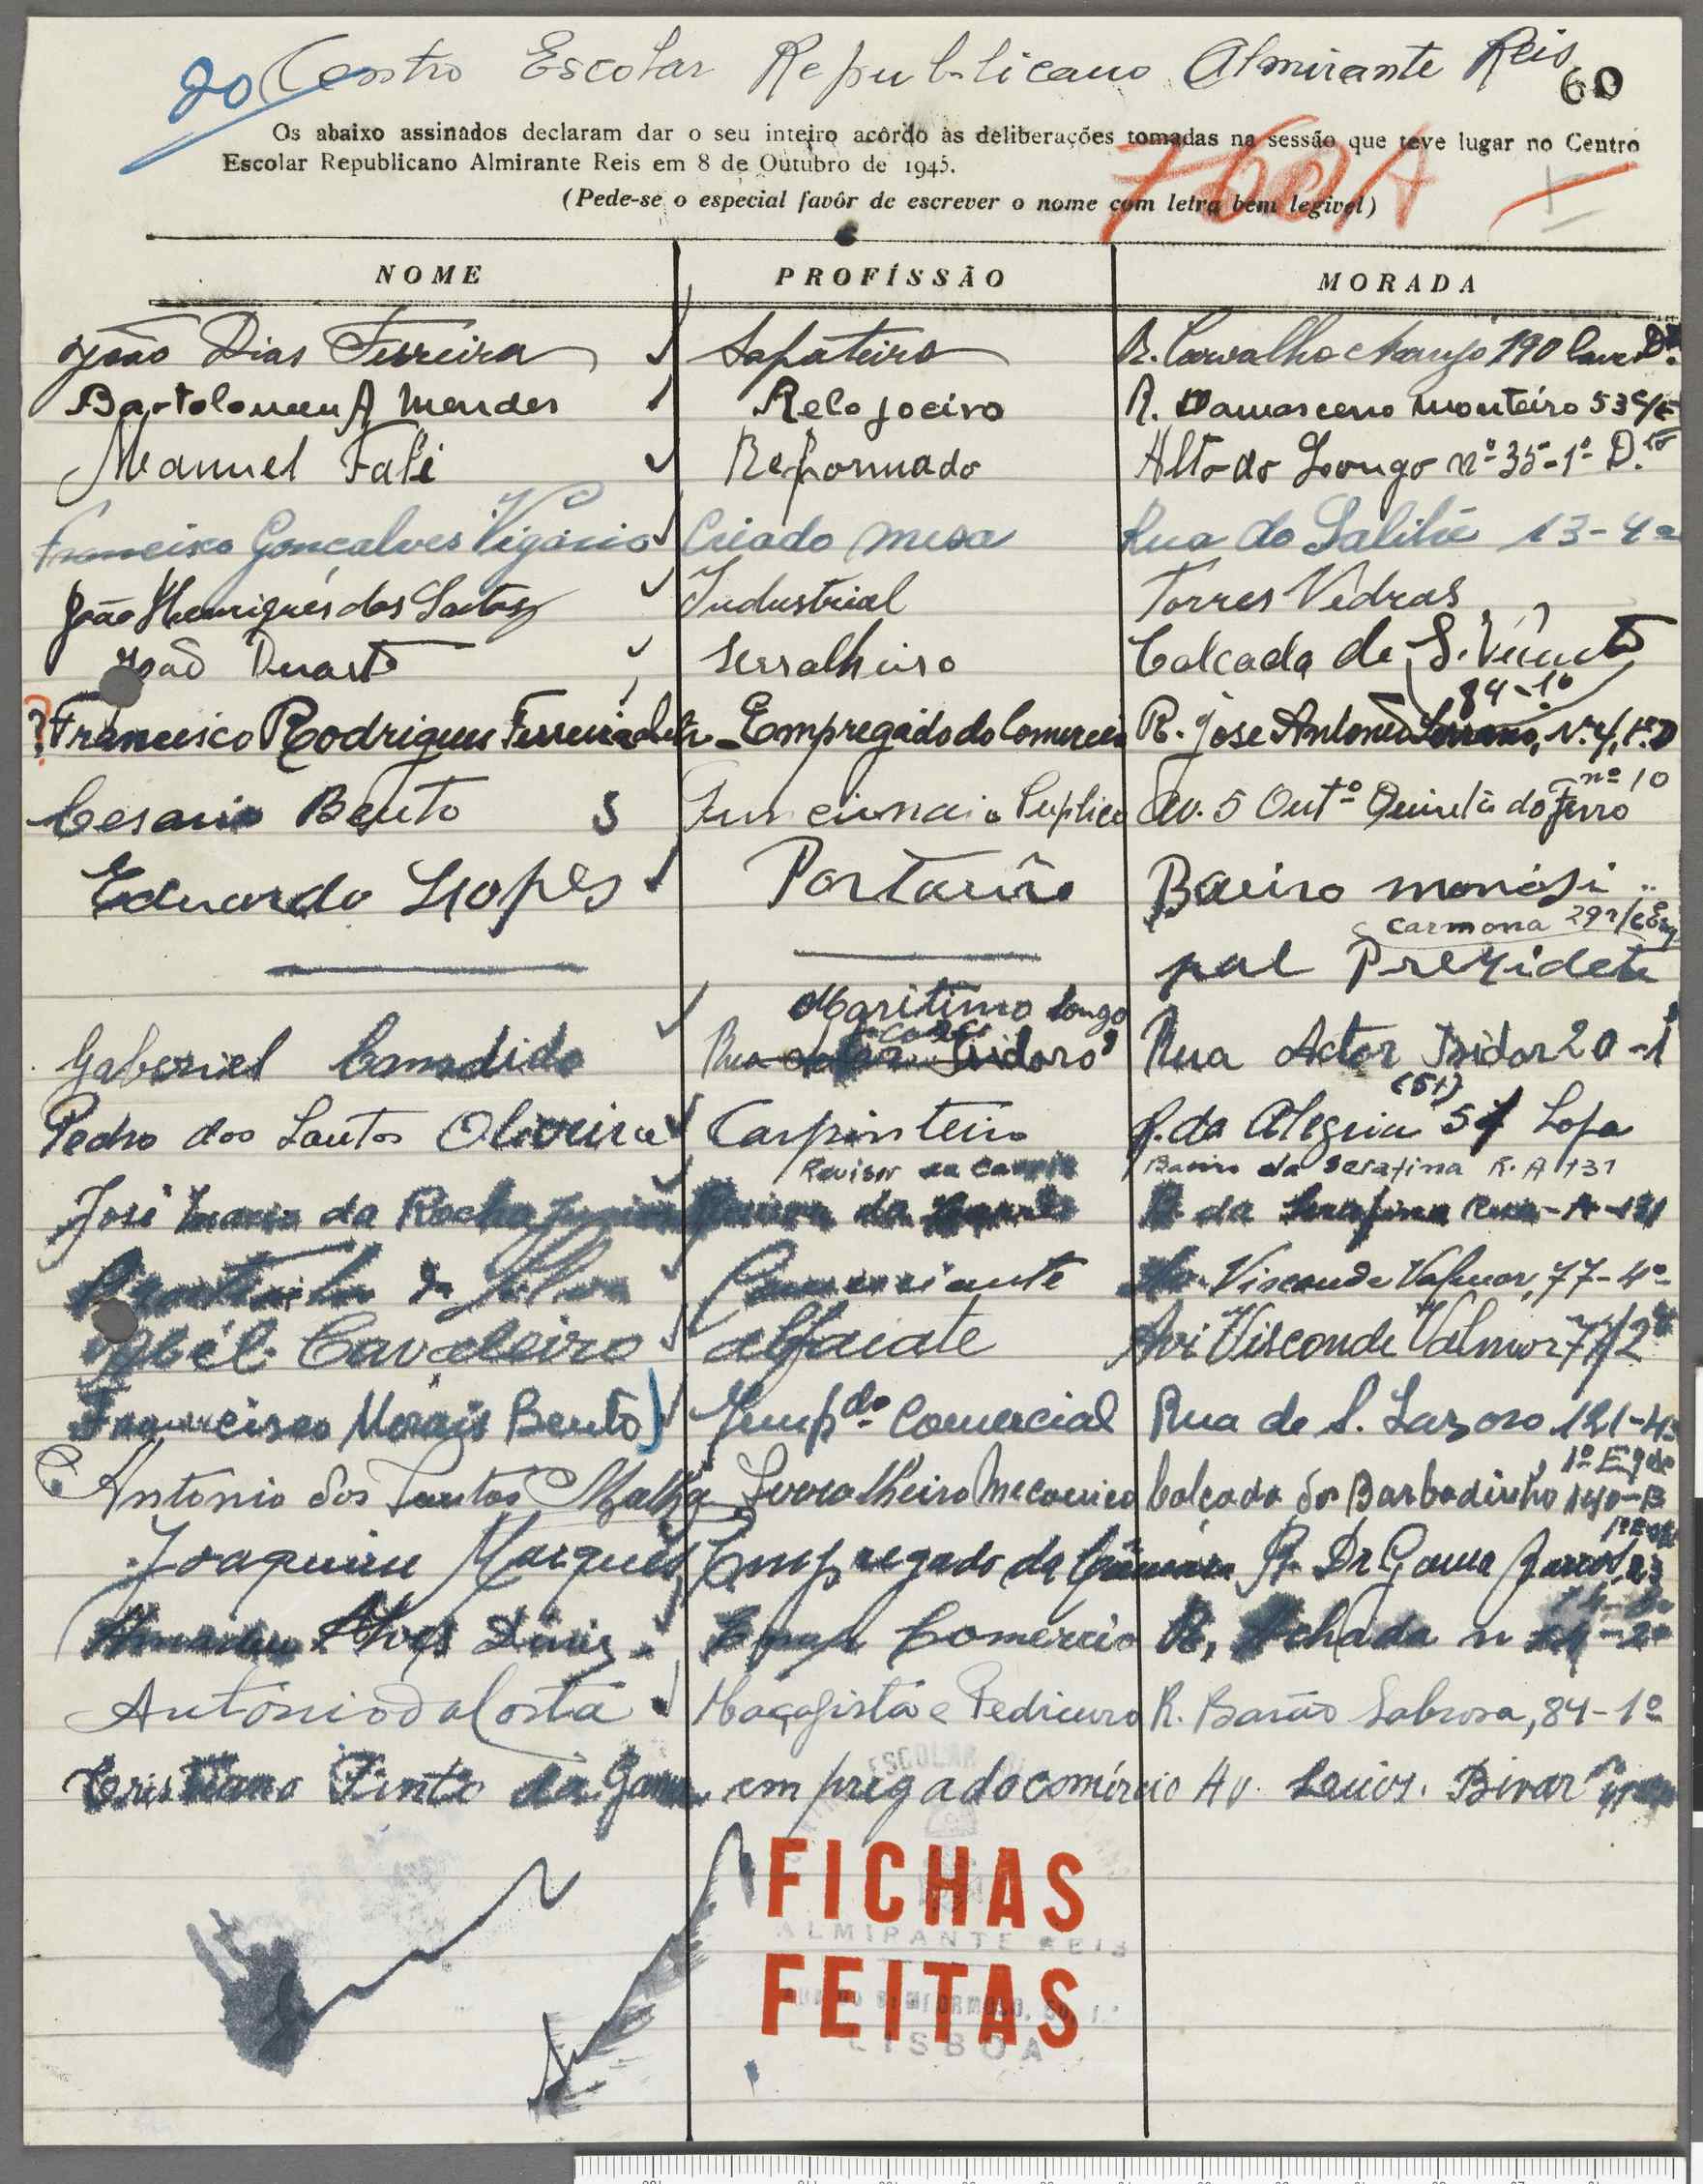 20 Centro Escolar Republicano Almirante Reis
60
Os abaixo assinados declaram dar o seu inteiro acôrdo às deliberações tomadas na sessão que teve lugar no Centro
Escolar Republicano Almirante Reis em 8 de Outubro de 1945.
(Pede-se o especial favôr de escrever o nome com letra bem legivel)
NOME PROFÍSSÃO MORADA
João Dias Ferreira Sapateiro R. Carvalho Araujo 190 Cave D.
Bartolomeu A Mendes Relojoeiro R. Damasceno Monteiro 53
Manuel Fali Reformado Alto do Longo nº 35-1º D.to
Francisco Gonçalves Vigário Criado mesa Rua do Salitre 13-4º
João Henriques dos Santos Industrial Torres Vedras
João Duarte Serralheiro Calcada de S. Vicente
84-1º
? Francisco Rodrigues Ferreira Empregado do Comercio R. Jose Antonio Serrano, Nº 4, 1º D
nº 10
Cesario Bento S Funcionario Puplico Av. 5 Outº Quinta do Ferro
Eduardo Llopes Portario Bairo monisi..
Carmona 29
pal Prezidete
Maritimo longo
curso
Gabersiel Candido Rua Actor Isidoro Rua Actor Isidor 20-1º
(51)
Pedro dos Santos Oliveira Carpinteiro R. da Alegria 51 Lofa
Revisor da Carris Bairro da Serafina R. A 131
José Maria da Rocha Junior Revisor da Carris B da Serafina Rua-A-131
da Silva Comerciante Av. Visconde Valmor, 77-4º
Abél Cavaleiro alfaiate Avi Visconde Valmor 77/2º
Francisco Morais Bento Empdo Comercial Rua de S. Lazaro 121-4º
1º Eqdo
Antonio dos Santos Malha Serralheiro Mecanico Calçada dos Barbadinho 140-B
Joaquim Marques Empregado da Câmara R. Dr Gama Barros, 23
14-2º
Amadeu Alves Diniz Emp Comercio R, Achada n 14-2º
António da Costa Maçagista e Pedicuro R. Barão Sabrosa, 84-1º
Cristiano Pinto da Gama empregado comércio Av. Luios. Bivar
ESCOLAR
FICHAS
ALMIRANTE REIS
FEITAS
LISBOA